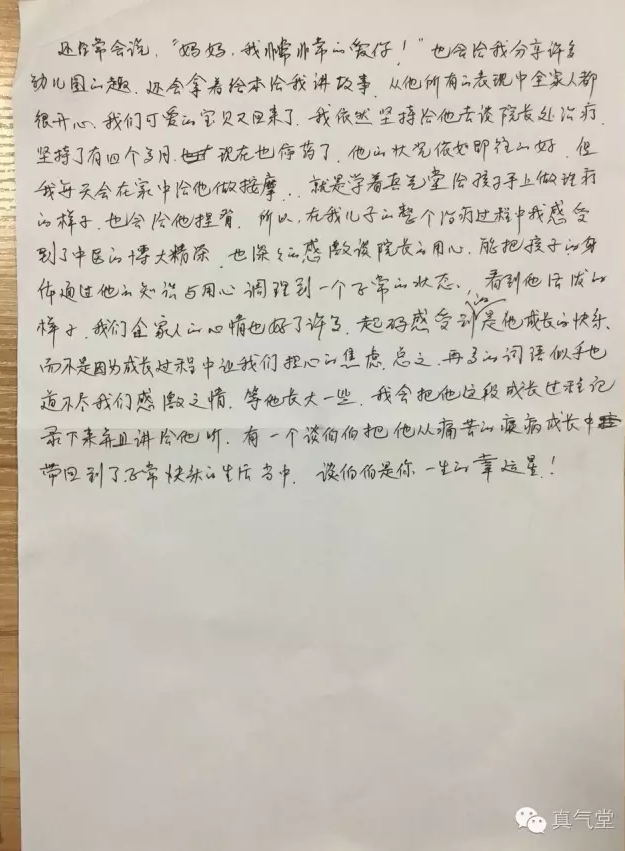 还经常会说，“妈妈，我非常非常的爱你！”也会给我分享许多
幼儿园的趣，还会拿着绘本给我讲故事，从他所有的表现中全家人都
很开心，我们可爱的宝贝又回来了，我依然坚持给他去谈院长处治疗，
坚持了有四个多月，现在也停药了，他的状况依如即往的好，但
我每天会在家中给他做按摩，就是学着真气堂给孩子手上做理疗
的样子，也会给他捏脊，所以，在我儿子的整个治疗过程中我感受
到了中医的博大精深，也深深的感激谈院长的用心，能把孩子的身
体通过他的知识与用心调理到一个正常的状态，看到他活泼的
样子，我们全家人的心情也好了许多，起码感受到的是他成长的快乐，
而不是因为成长过程中让我们担心的焦虑，总之，再多的词语似乎也
道不尽我们感激之情，等他长大一些，我会把他这段成长过程记
录下来并且讲给他听，有一个谈伯伯把他从痛苦的疾病成长中
带回到了正常快乐的生活当中，谈伯伯是你一生的幸运星！
真气堂